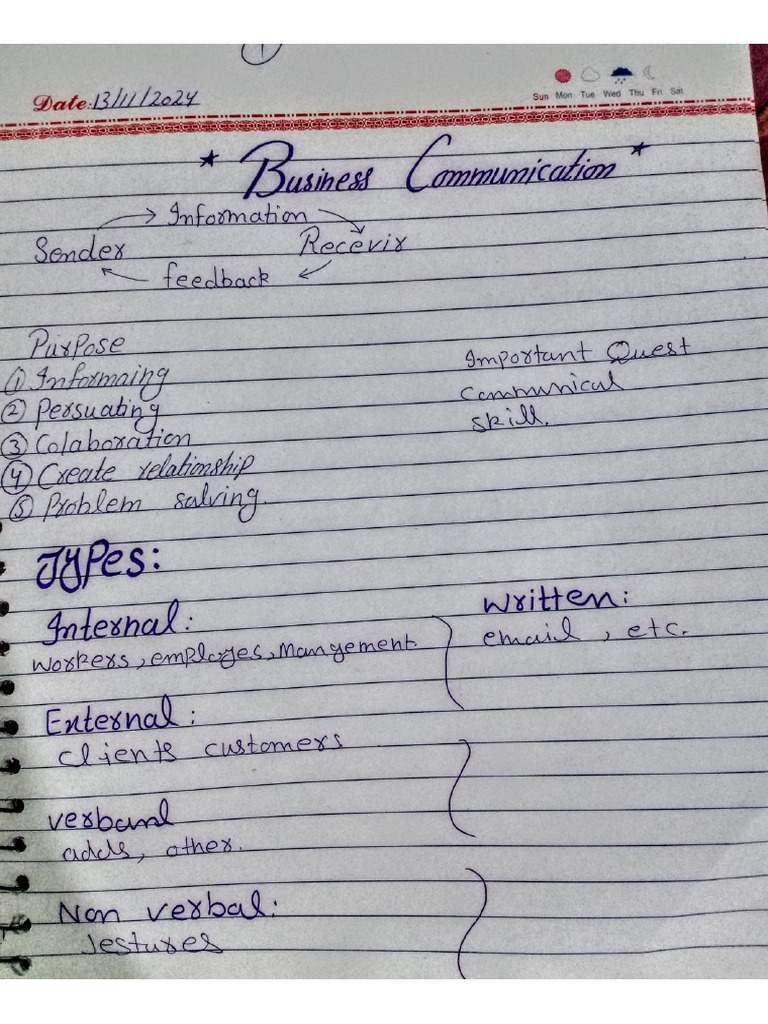 1
Date: 13/11/2024
Sun Mon Tue Wed Thu Fri Sat
* Business Communication *
Information
Sender Recevir
feedback
Purpose
① Informaing
② Persuating
③ Colaboration
④ Create relationship
⑤ Problem salving.
Important Quest
Communical
skill.
Types:
Internal:
workers, employes, Mangement.
External:
Clients customers
verbaml
adds, other.
Non verbal:
Jestures
Written:
email, etc.